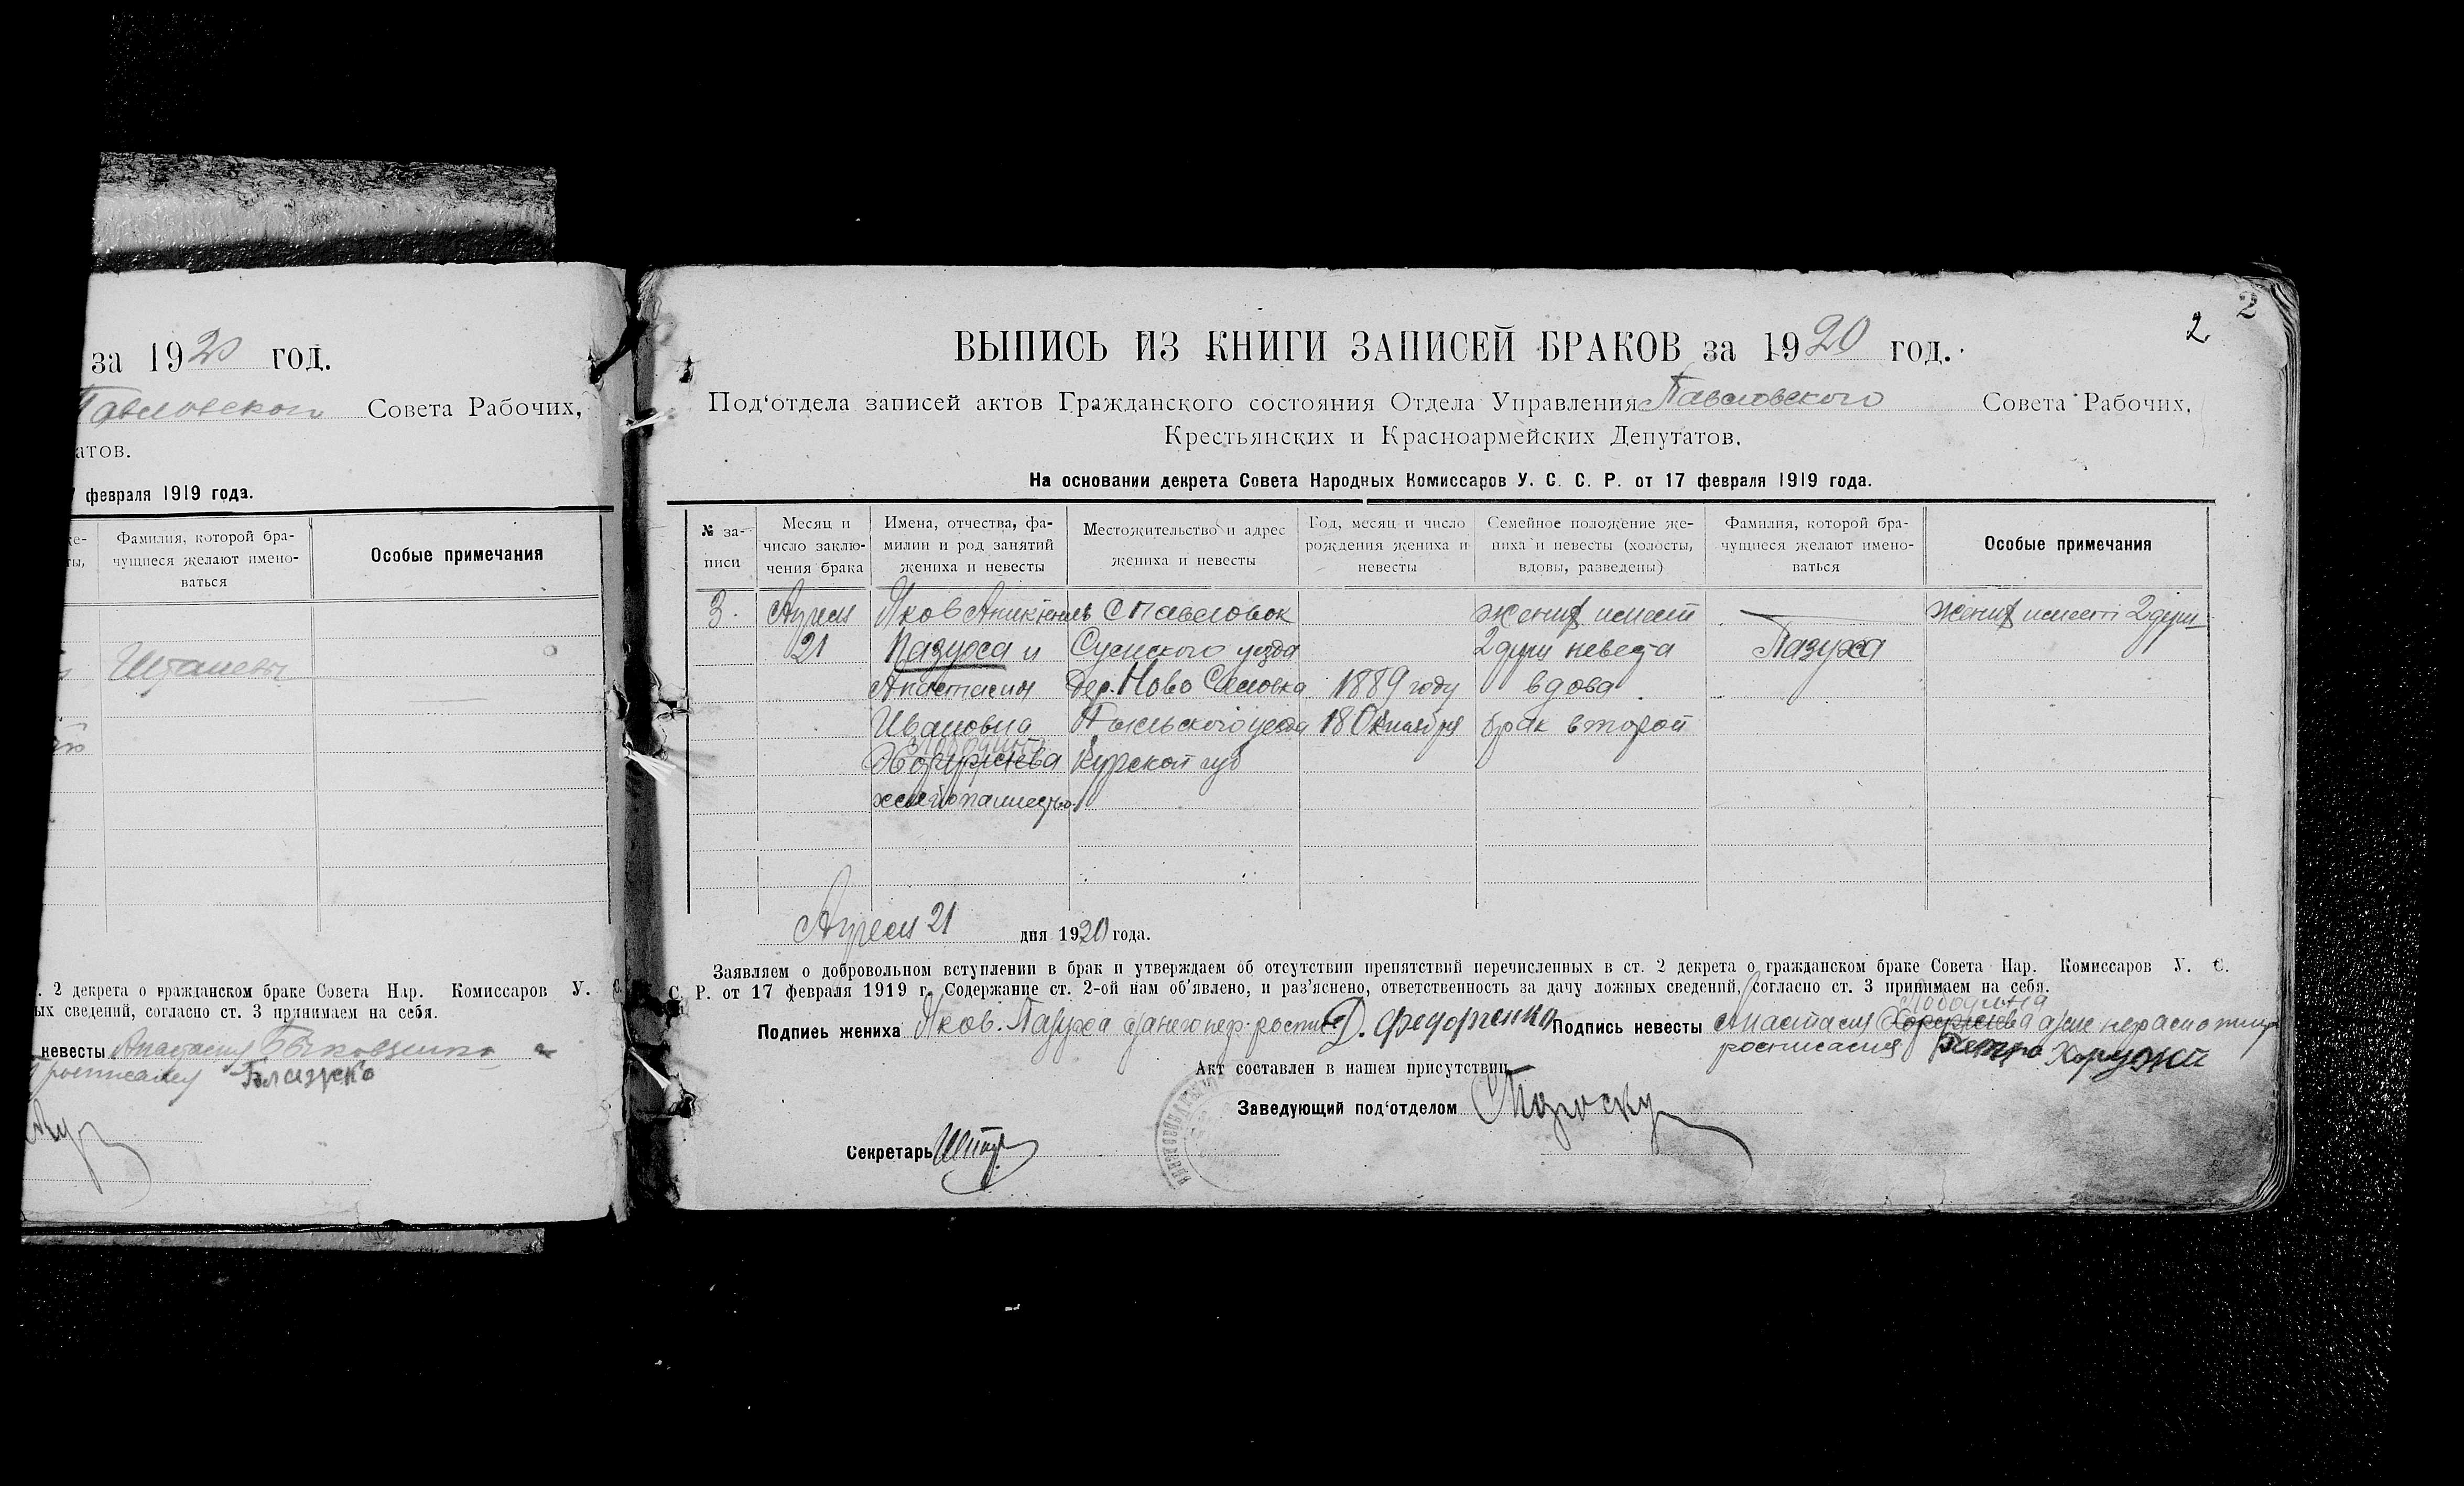 за 1920 год.
Павловского Совета Рабочих,
атов.
февраля 1919 года.
Фамилия, которой бра-
чущиеся желают имено-
ваться
Особые примечания
. 2 декрета о гражданском браке Совета Нар. Комиссаров У. С.
ых сведений, согласно ст. 3 принимаем на себя.
невесты Анастасия
2
2
ВЫПИСЬ ИЗ КНИГИ ЗАПИСЕЙ БРАКОВ за 1920 год.
Под‘отдела записей актов Гражданского состояния Отдела Управления Павловского Совета Рабочих,
Крестьянских и Красноармейских Депутатов.
На основании декрета Совета Народных Комиссаров У. С. С. Р. от 17 февраля 1919 года.
№ за-
писи
Месяц и
число заклю-
чения брака
Имена, отчества, фа-
милии и род занятий
жениха и невесты
Местожительство и адрес
жениха и невесты
Год, месяц и число
рождения жениха и
невесты
Семейное положение же-
ниха и невесты (холосты,
вдовы, разведены)
Фамилия, которой бра-
чущиеся желают имено-
ваться
Особые примечания
3. Апреля Яков С Павловок жених имеет жених имеет 2 душ
21 Пазуха и Сумского уезда 2 душ невеста Пазуха
Анастасия Дер. Ново 1889 году вдова
Ивановна уезда 18 Октября брак второй
Курской губ
хлебопашество
Апреля 21 дня 1920 года.
Заявляем о добровольном вступлении в брак и утверждаем об отсутствии препятствий перечисленных в ст. 2 декрета о гражданском браке Совета Нар. Комиссаров У. С.
С. Р. от 17 февраля 1919 г. Содержание ст. 2-ой нам об‘явлено, и раз‘яснено, ответственность за дачу ложных сведений, согласно ст. 3 принимаем на себя.
Подпись жениха Яков Пазуха Д. Федорченко Подпись невесты Анастасия
Петро Хоружий
Акт составлен в нашем присутствии
Заведующий под‘отделом
Секретарь